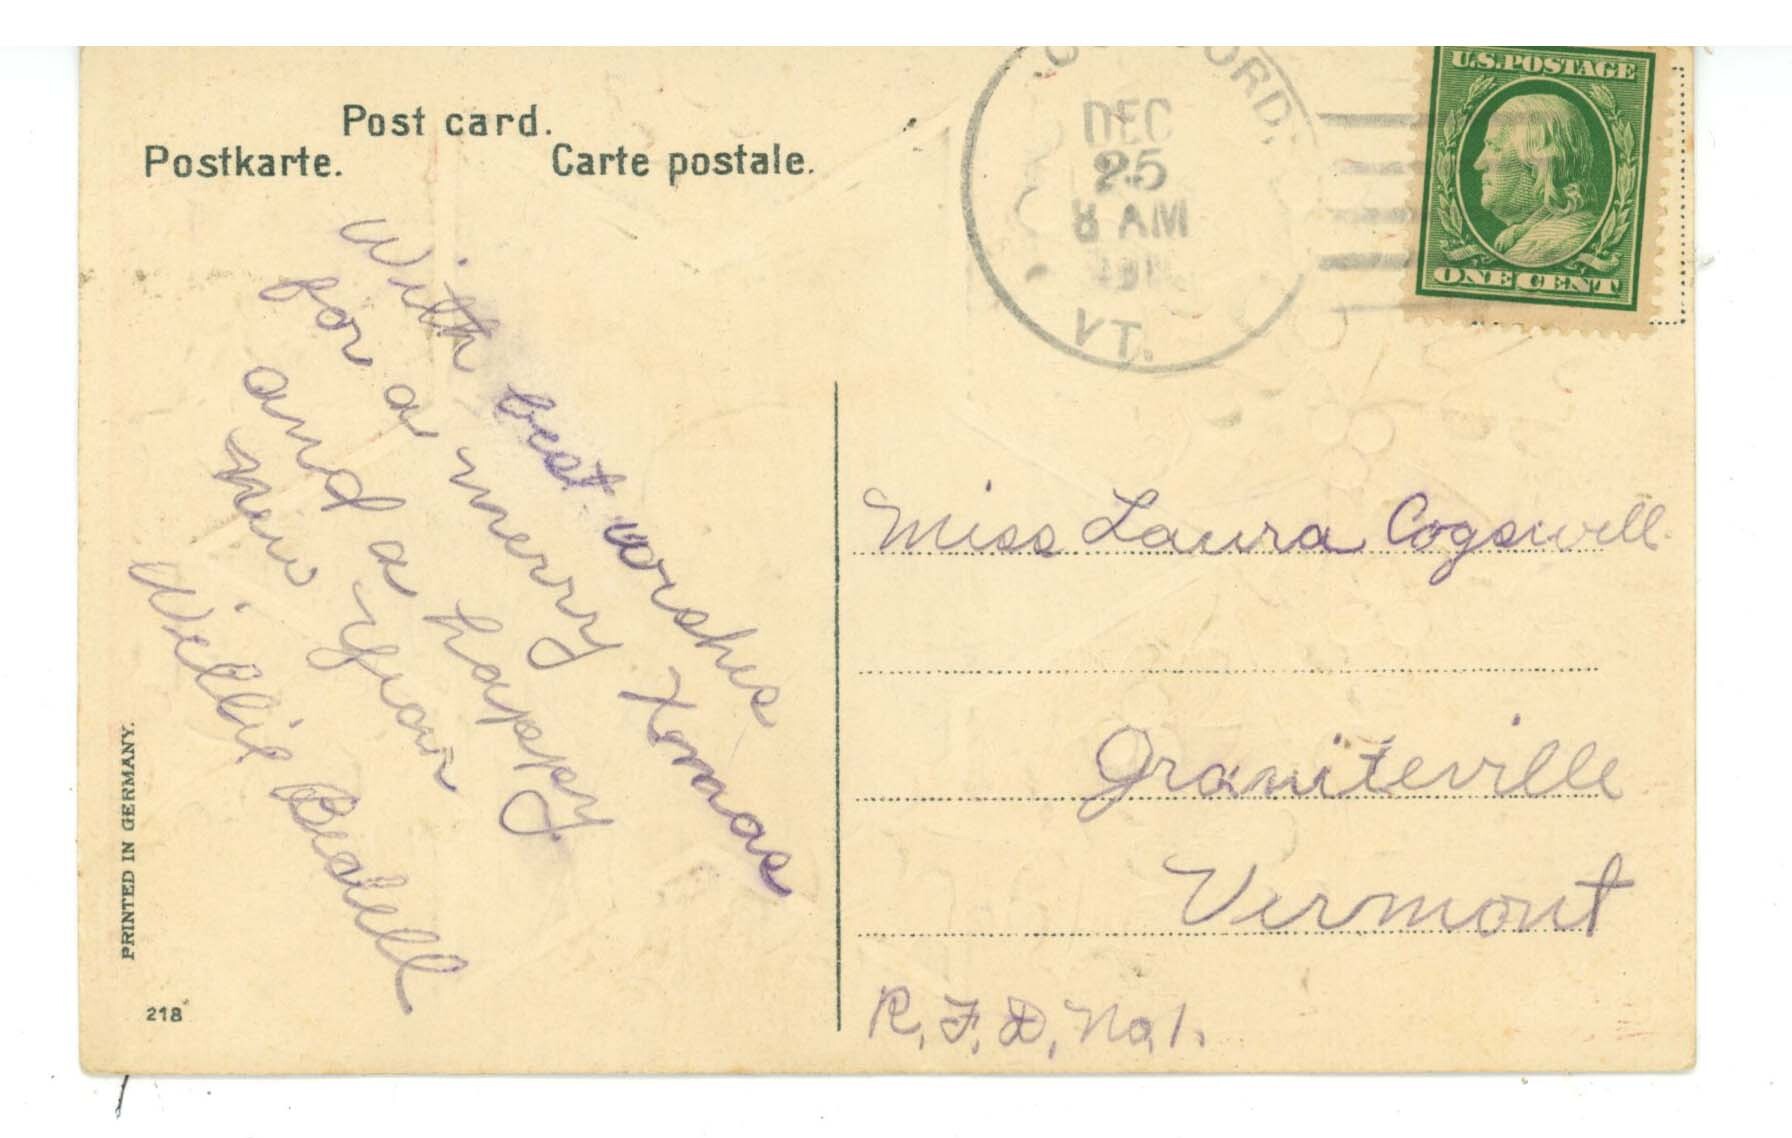 Post card.
Postkarte. Carte postale.
DEC
25
8 AM
VT.
U.S. POSTAGE
ONE CENT
With best wishes
for a merry Xmas
and a happy
New Year
Willie
Miss Laura Cogswell
Graniteville
Vermont
R.F.D. No 1.
PRINTED IN GERMANY.
218